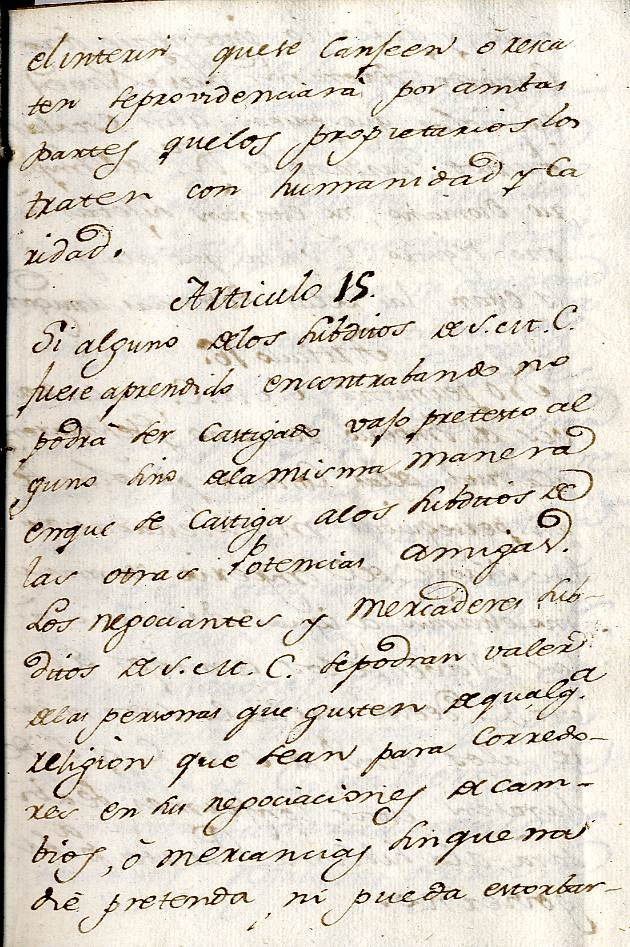 el interin que se Canjeen, ó resca
ten se providenciará por ambas
partes que los propietarios los
traten com humanidad y Ca
ridad.
Articulo 15.
Si alguno de los subditos de S. M. C.
fuese aprendido en contrabando no
podrá ser Castigado vajo pretesto al
guno sino de la misma manera
en que se Castiga a los subditos de
las otras Potencias amigas.
Los negociantes y Mercaderes sub-
ditos de S. M. C. se podran valer
de las personas que gusten de qualq.a
religion que sean para Corredo-
res en sus negociaciones de cam-
bios, ó mercancias sin que na
die pretenda, ni pueda estorbar-